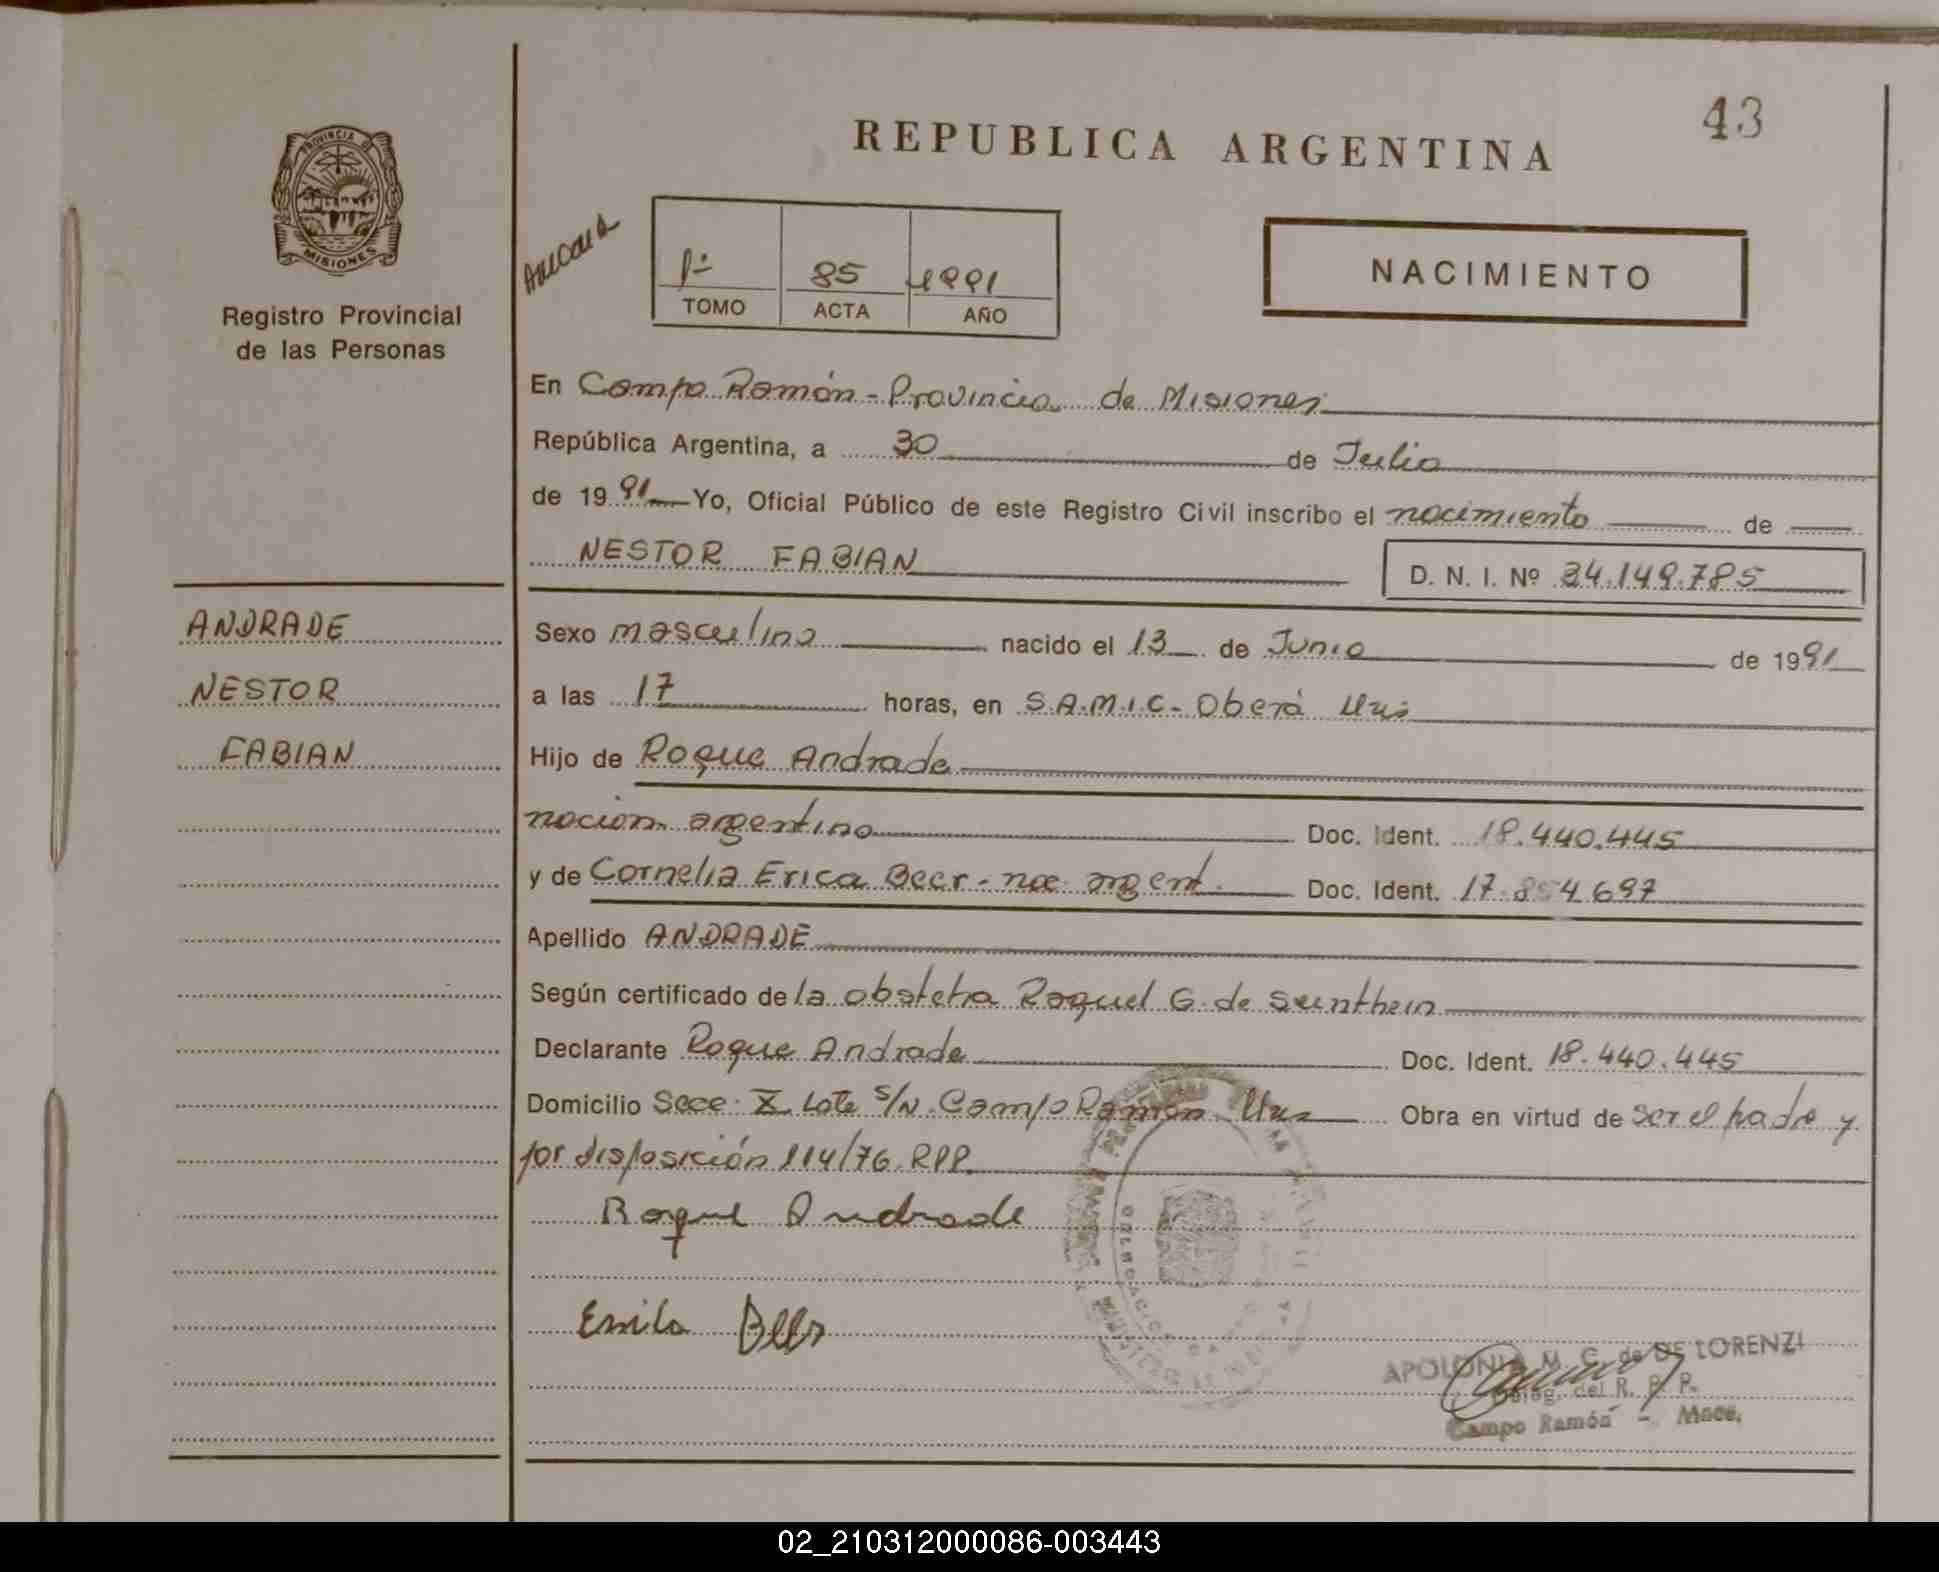 43
REPUBLICA ARGENTINA
PROVINCIA DE
MISIONES
Registro Provincial
de las Personas
1º 85 1991
TOMO ACTA AÑO
NACIMIENTO
En Campo Ramón - Provincia de Misiones
República Argentina, a 30 de Julio
de 1991 Yo, Oficial Público de este Registro Civil inscribo el nacimiento de
NESTOR FABIAN D. N. I. Nº 34.149.785
ANDRADE
NESTOR
FABIAN
Sexo masculino nacido el 13 de Junio de 1991
a las 17 horas, en S.A.M.I.C. - Oberá
Hijo de Roque Andrade
nacion. argentino Doc. Ident. 18.440.445
y de Cornelia Erica Beer - nac. argent. Doc. Ident. 17.854.697
Apellido ANDRADE
Según certificado de la obstetra Raquel G. de
Declarante Roque Andrade Doc. Ident. 18.440.445
Domicilio Secc. X Lote s/N. Campo Ramón Obra en virtud de ser el padre y
por disposición 114/76 RPP
Roque Andrade
APOLONIA M. C. de DE LORENZI
Deleg. del R. P. P.
Campo Ramón - Mnes.
02_210312000086-003443